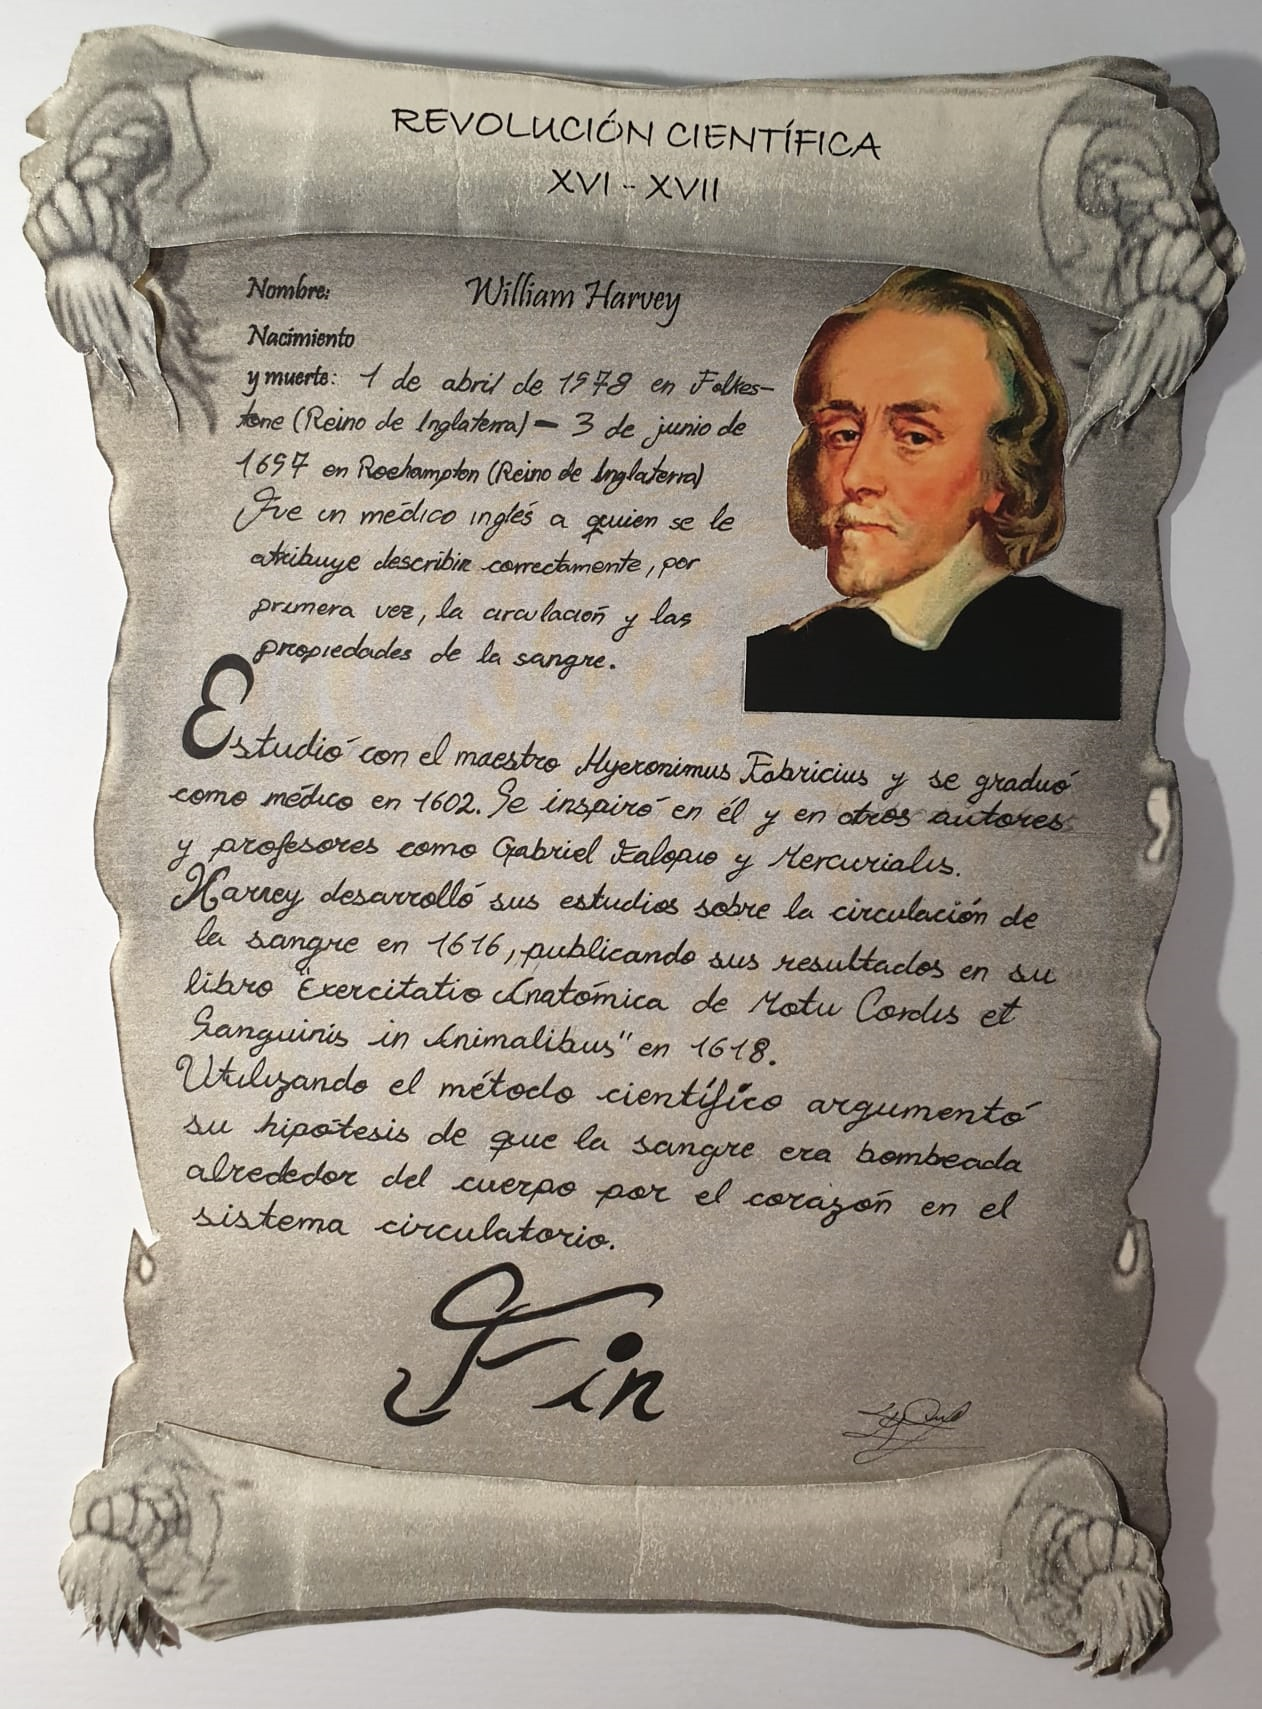 REVOLUCIÓN CIENTÍFICA
XVI - XVII
Nombre: William Harvey
Nacimiento
y muerte: 1 de abril de 1978 en Folkes-
tone (Reino de Inglaterra) - 3 de junio de
1697 en Roehampton (Reino de Inglaterra)
Fue un médico inglés a quien se le
atribuye describir correctamente, por
primera vez, la circulación y las
propiedades de la sangre.
Estudió con el maestro Hyeronimus Fabricius y se graduó
como médico en 1602. Se inspiró en él y en otros autores
y profesores como Gabriel Falopio y Mercurialis.
Harvey desarrolló sus estudios sobre la circulación de
la sangre en 1616, publicando sus resultados en su
libro "Exercitatio Anatómica de Motu Cordis et
Sanguinis in Animalibus" en 1618.
Utilizando el método científico argumentó
su hipótesis de que la sangre era bombeada
alrededor del cuerpo por el corazón en el
sistema circulatorio.
Fin